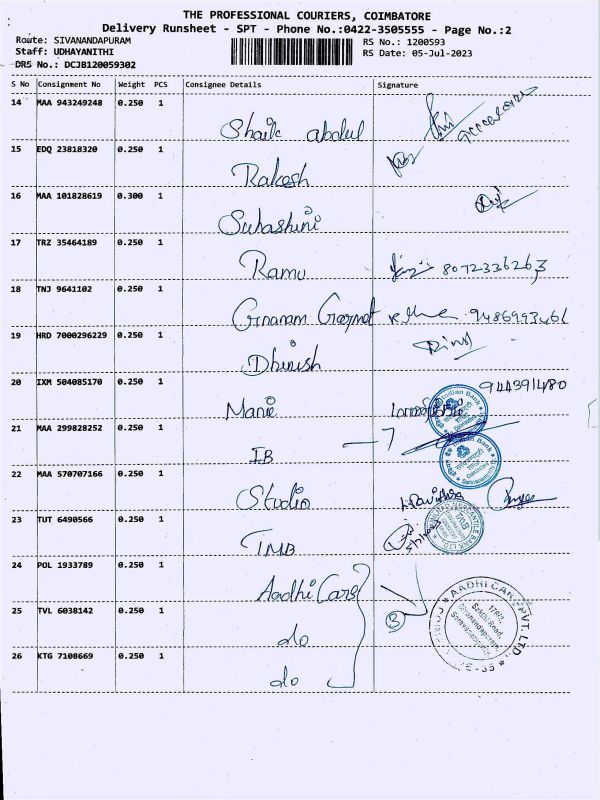 THE PROFESSIONAL COURIERS, COIMBATORE
Delivery Runsheet - SPT - Phone No.:0422-3505555 - Page No.:2
Route: SIVANANDAPURAM
Staff: UDHAYANITHI
DRS No.: DCJB120059302
RS No.: 1200593
RS Date: 05-Jul-2023
S No Consignment No Weight PCS Consignee Details Signature
14 MAA 943249248 0.250 1
Shaik abdul
15 EDQ 23818320 0.250 1
Rakesh
16 MAA 101828619 0.300 1
Suhashini
17 TRZ 35464189 0.250 1
Ramu 8072336263
18 TNJ 9641102 0.250 1
Gnanam 9486993461
19 HRD 7000296229 0.250 1
Dhinish
20 IXM 504085170 0.250 1
Mani 944391480
21 MAA 299828252 0.250 1
IB
Indian Bank
Indian Bank
22 MAA 570707166 0.250 1
Studio
23 TUT 6490566 0.250 1
TMB
24 POL 1933789 0.250 1
Aadhi Cars
25 TVL 6038142 0.250 1
do
3
AADHI CARS PVT. LTD.
Sathi Road,
Sivanandapuram,
26 KTG 7108669 0.250 1
do